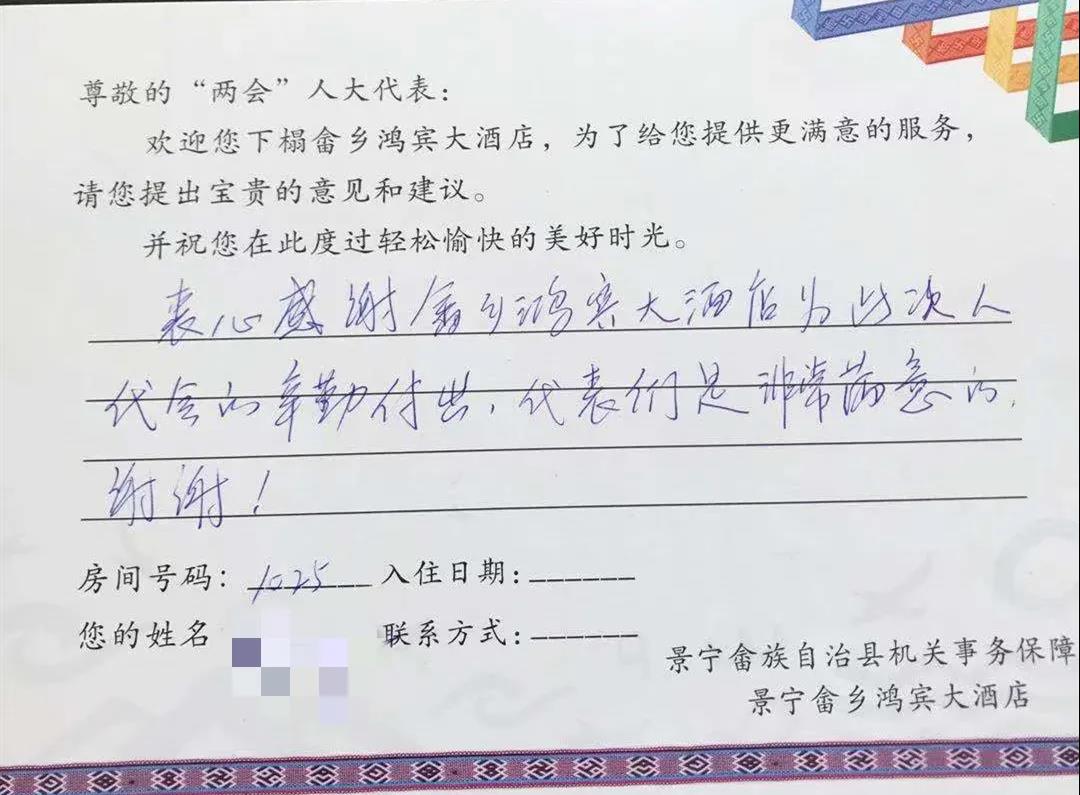 尊敬的“两会”人大代表：
欢迎您下榻畲乡鸿宾大酒店，为了给您提供更满意的服务，
请您提出宝贵的意见和建议。
并祝您在此度过轻松愉快的美好时光。
衷心感谢畲乡鸿宾大酒店为此次人
代会的辛勤付出，代表们是非常满意的，
谢谢！
房间号码：1025 入住日期：______
您的姓名 联系方式：______
景宁畲族自治县机关事务保障
景宁畲乡鸿宾大酒店